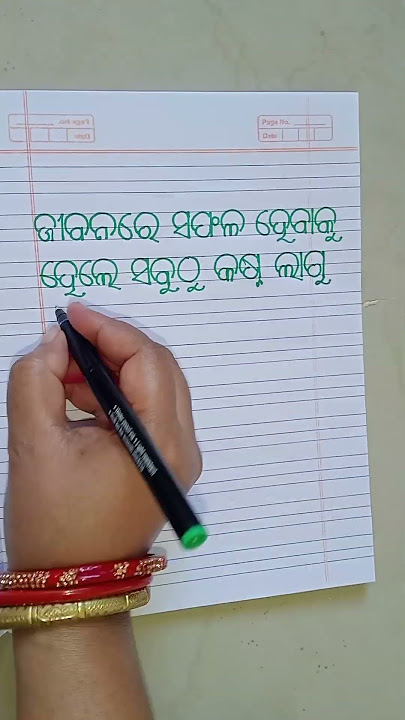 Page No.
Date
ଜୀବନରେ ସଫଳ ହେବାକୁ
ହେଲେ ସବୁଠୁ କଷ୍ଟ ଲାଗୁ